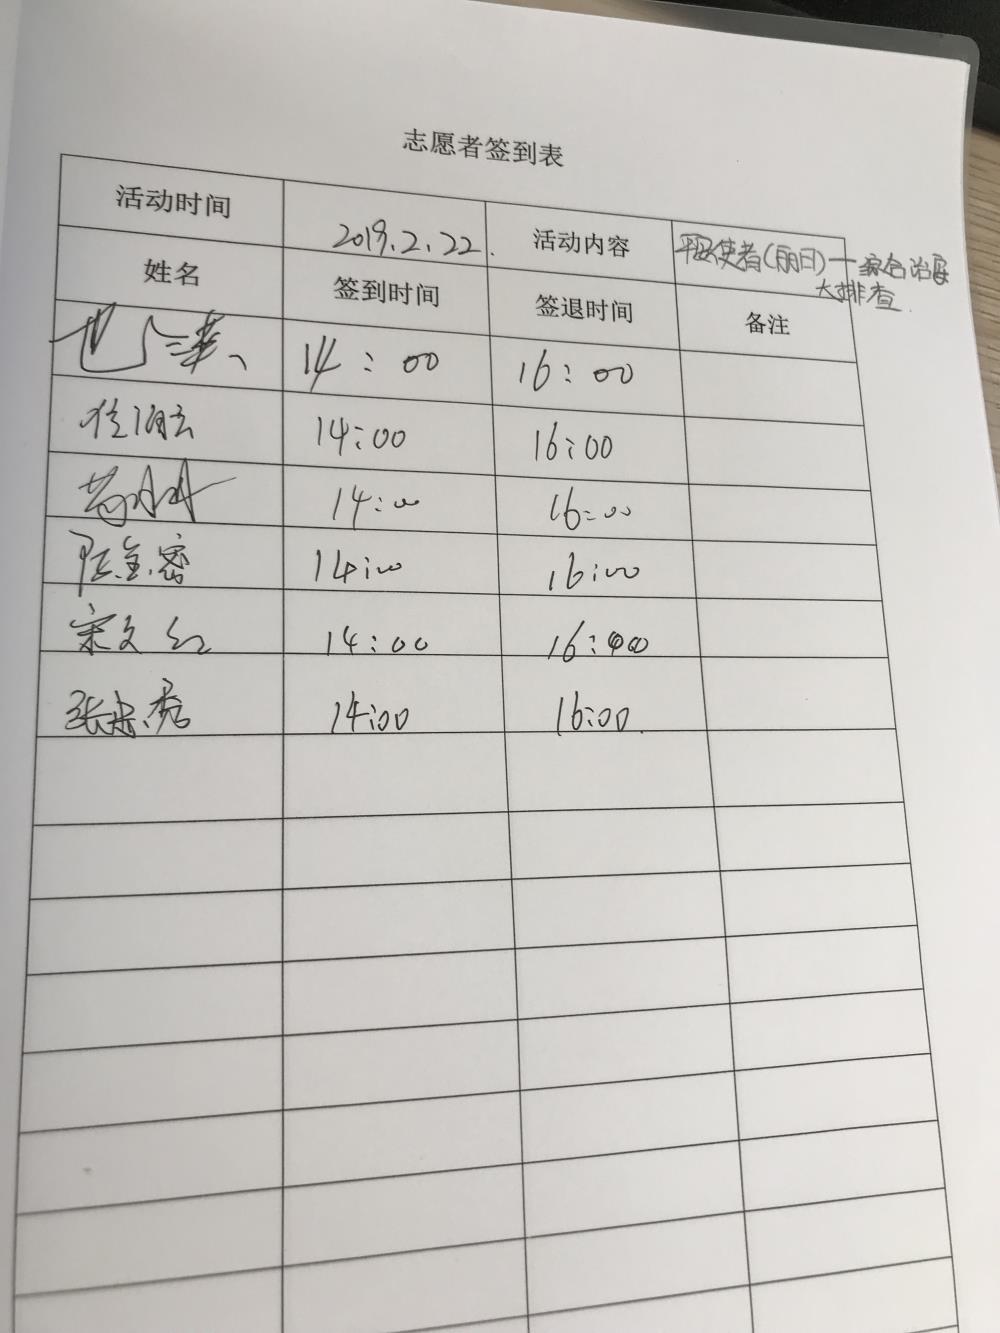 志愿者签到表
活动时间 2019.2.22. 活动内容 平安使者(丽日)一综合治安
大排查.
姓名 签到时间 签退时间 备注
14:00 16:00
14:00 16:00
14:00 16:00
14:00 16:00
宋文红 14:00 16:00
张忠秀 14:00 16:00.